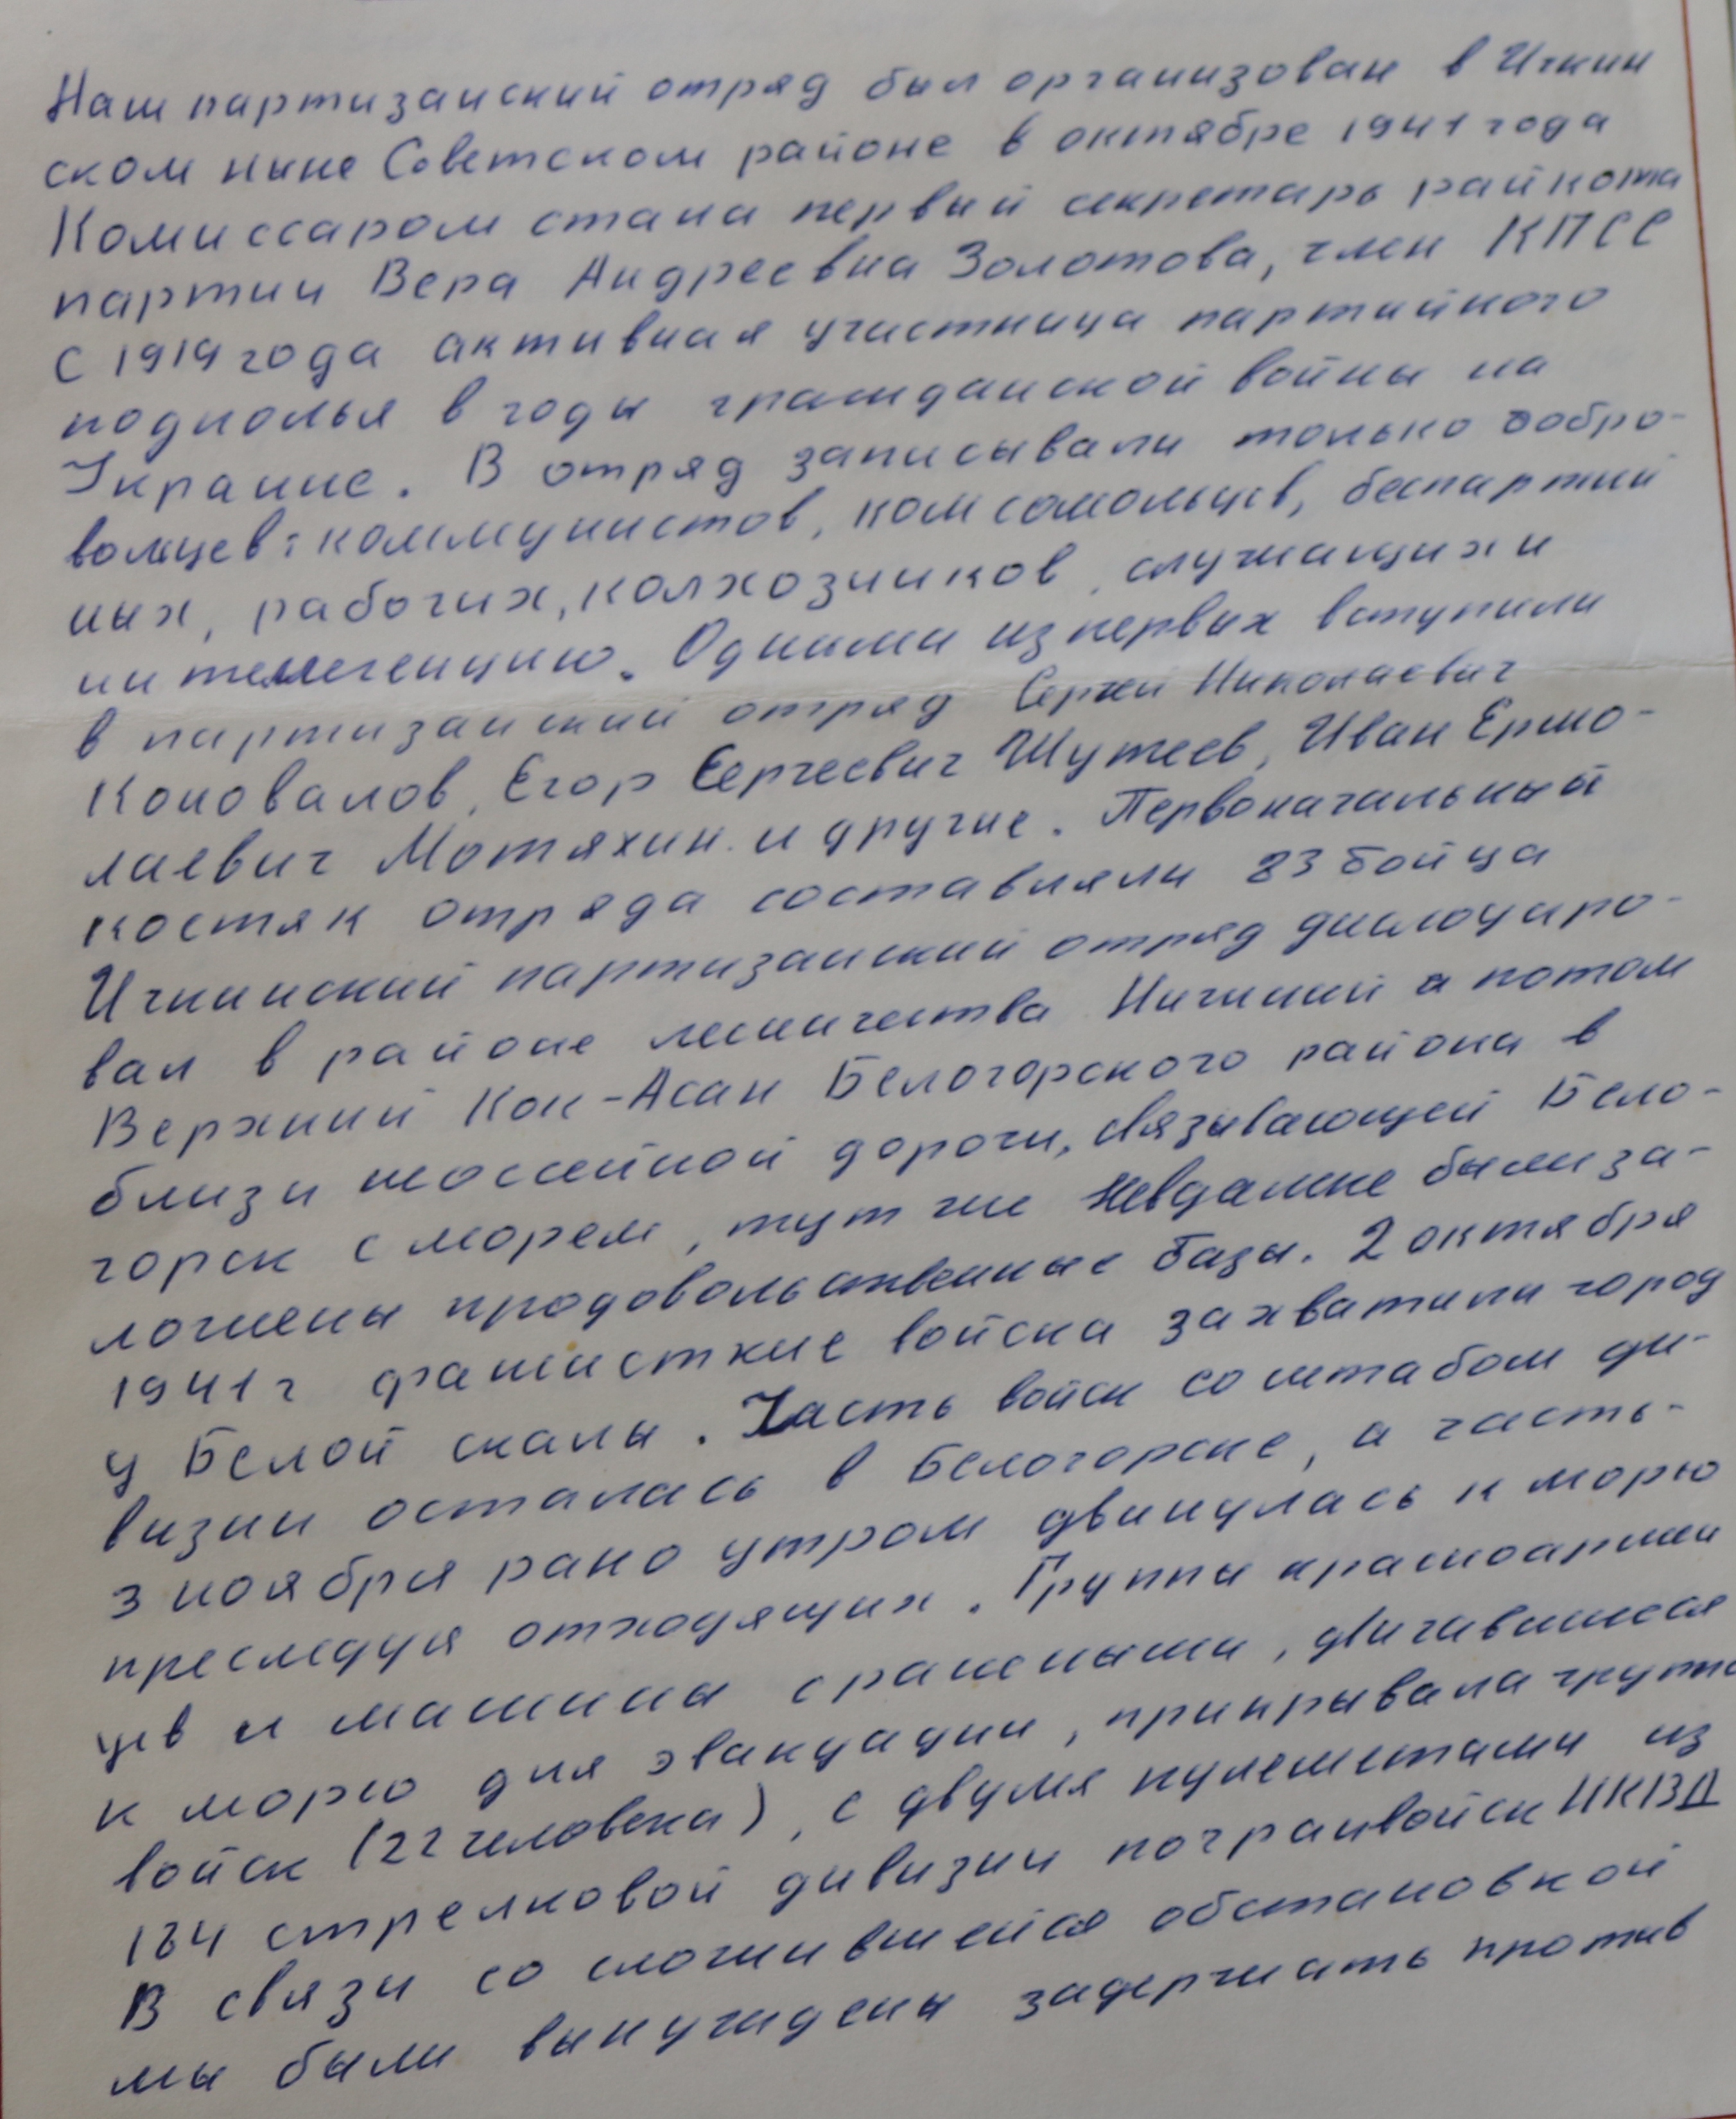 Наш партизанский отряд был организован в Ички
ском ныне Советском районе в октябре 1941 года
Комиссаром стала первый секретарь райкома
партии Вера Андреевна Золотова, член КПСС
с 1919 года активная участница партийного
подполья в годы гражданской войны на
Украине. В отряд записывали только добро-
вольцев: коммунистов, комсомольцев, беспартий
ных, рабочих, колхозников, служащих и
интеллегенцию. Одними из первых вступили
в партизанский отряд Сергей Николаевич
Коновалов, Егор Сергеевич Шутеев, Иван Ермо-
лаевич Мотяхин и другие. Первоначальный
костяк отряда составляли 83 бойца
Ичкинский партизанский отряд дислоциро-
вал в районе лесничества Нижний а потом
Верхний Кок-Асан Белогорского района в
близи шоссейной дороги, связывающей Бело-
горск с морем, тут же невдалеке были за-
ложены продовольственные базы. 2 октября
1941 г фашисткие войска захватили город
у Белой скалы. Часть войск со штабом ди-
визии осталась в Белогорске, а часть-
3 ноября рано утром двинулась к морю
преследуя отходящих. Группы красноармей
цев и машины с ранеными, двигавшиеся
к морю для эвакуации, прикрывала группа
войск (22 человека), с двумя пулеметами из
184 стрелковой дивизии погранвойск НКВД
В связи со сложившейся обстановкой
мы были вынуждены задержать против